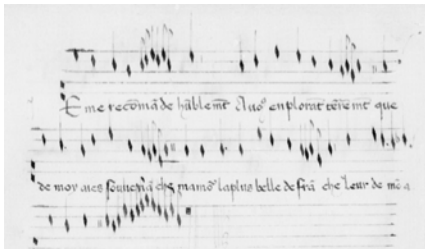 E me recōmāde hūblemt̄ A voꝰ en plorāt tēremt̄ que
de moy aies souhen māche mamoꝰ la plus belle de frā che leur de mē a